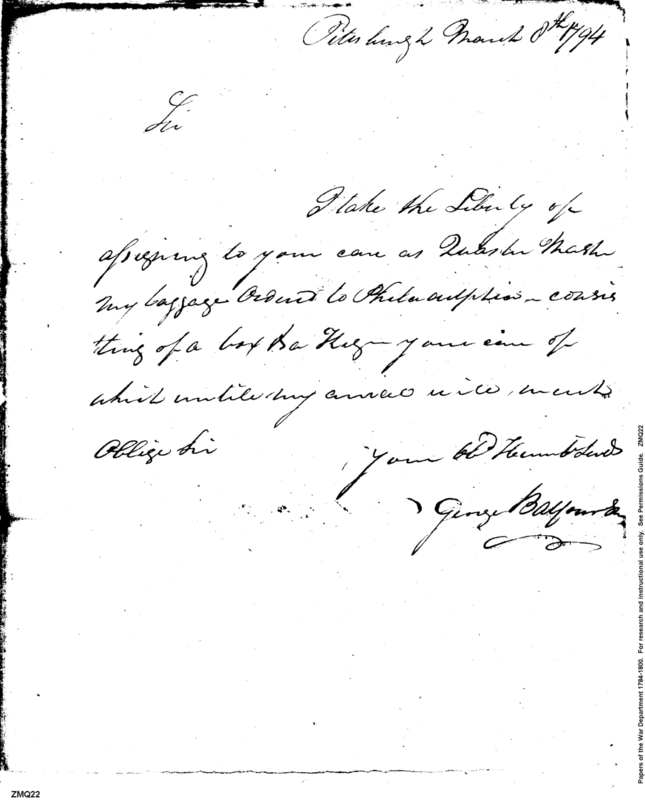 Pittsburgh March 8th 1794
Sir
I take the Liberty of
assigning to your care as Quarter Master
my baggage Ordered to Philadelphia - consis
ting of a box & a Keg - your care of
which untile my arrival will, much
Oblige Sir
Your obt Humbe Servt
George Balfour
Papers of the War Department 1784-1800. For research and instructional use only. See Permissions Guide. ZMQ22
ZMQ22